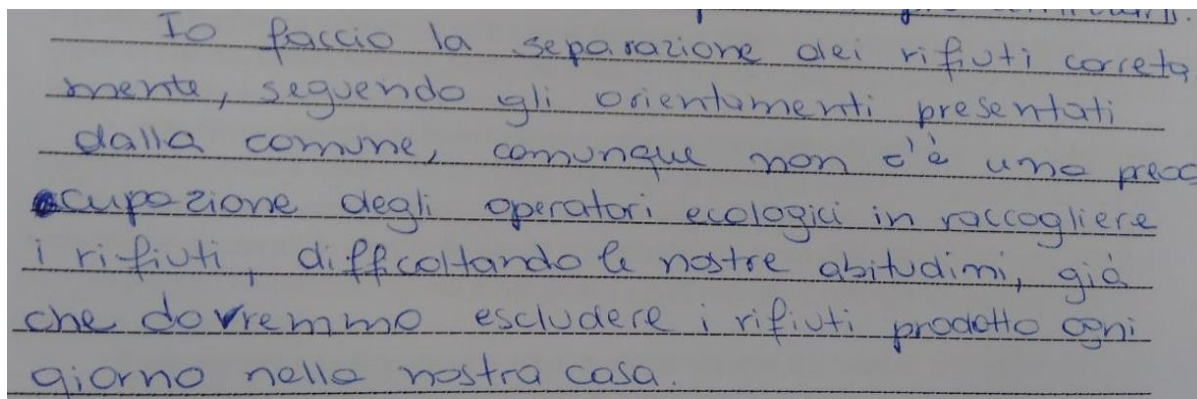 Io faccio la separazione dei rifiuti correta
mente, seguendo gli orientamenti presentati
dalla comune, comunque non c'è una preoc
cupazione degli operatori ecologici in raccogliere
i rifiuti, difficoltando le nostre abitudimi, già
che dovremmo escludere i rifiuti prodotto ogni
giorno nella nostra casa.